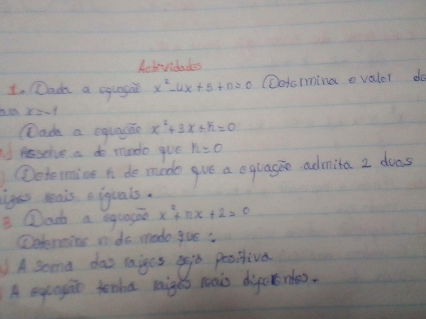 Actividades
1. Dada a equação x²-4x+8+n=0 Determina o valor de
para x=-1
Dada a equação x²+3x+n=0
) Resolve a de modo que n=0
) Determine n de modo que a equação admita 2 duas
raizes reais e iguais.
3 Dada a equação x²+nx+2=0
Determine n de modo que:
) A soma das raizes seja positiva
) A equação tenha raizes reais diferentes.